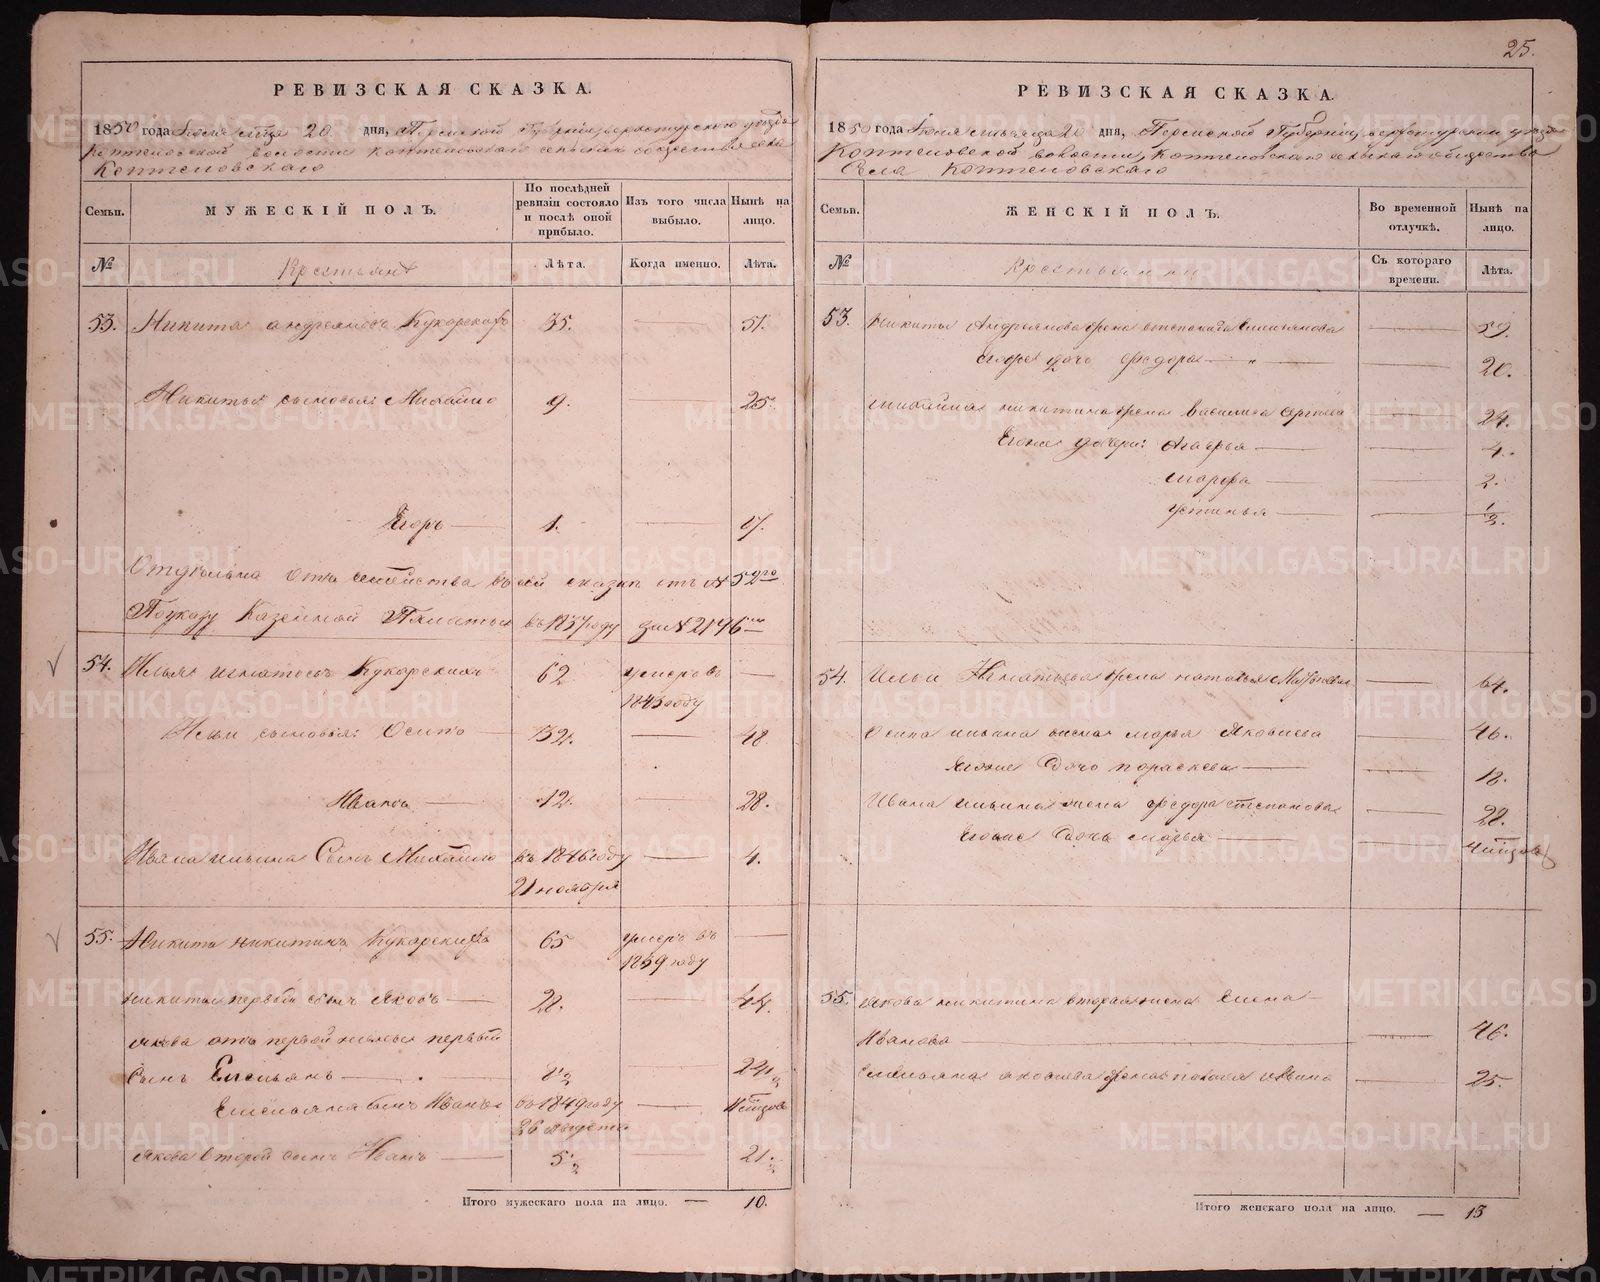 25.
РЕВИЗСКАЯ СКАЗКА.
1850 года Іюня м-ца 20 дня, Пермской Губерніи, верхотурскаго уезда
Коптеловской волости Коптеловскаго сельскаго общества села
Коптеловскаго
Семьи.
МУЖЕСКІЙ ПОЛЪ.
По послѣдней ревизіи состояло и послѣ оной прибыло.
Изъ того числа выбыло.
Нынѣ на лицо.
№
Крестьянъ
Лѣта.
Когда именно.
Лѣта.
53. Никита андреяновъ Кукарскихъ 35. — 51.
Никиты сыновья: Михайло 9. — 25.
Егоръ — 1. — 17.
Отдѣльна отъ семейства въ сей сказки отъ № 52го
По указу Казенной Палаты въ 1837 году за № 2146мъ
54. Илья игнатьевъ Кукарскихъ 62 умеръ въ 1845 году —
Ильи сыновья: Осипъ — 32. — 48
Иванъ — 12. — 28.
Ивана ильина Сынъ Михайло въ 1846 году — 4.
21 ноября
55. Никита никитинъ Кукарскихъ 65 умеръ въ 1849 году —
никиты первый сынъ яковъ — 28. — 44.
якова отъ первой жены первый
Сынъ Емельянъ — 8 1/2 24 1/2
Емельяна сынъ Иванъ въ 1849 году —
26 августа
якова второй сынъ Иванъ — 5 1/2 — 21 1/2
Итого мужескаго пола на лицо. — 10.
РЕВИЗСКАЯ СКАЗКА.
1850 года Іюня месяца 20 дня, Пермской Губерніи, верхотурскаго уезда
Коптеловской волости, Коптеловскаго сельскаго общества
Села Коптеловскаго
Семьи.
ЖЕНСКІЙ ПОЛЪ.
Во временной отлучкѣ.
Нынѣ на лицо.
№
Крестьянки
Съ котораго времени.
Лѣта.
53. никиты Андреянова жена степанида Емельянова — 59.
дочь федора — " — 20.
михайла никитина жена василиса сергѣева — 24.
Егоже дочери: Агафья — 4.
марфа — 2.
устинья — 1/2.
54. Ильи Игнатьева жена наталья — 64.
Осипа ильина жена марья Яковлева — 46.
Егоже дочь параскева — 18.
Ивана ильина жена федора степанова — 28.
Егоже дочь марья —
55. якова никитина вторая жена Елена —
Иванова — 46.
емельяна яковлева жена — 25.
Итого женскаго пола на лицо. — 13